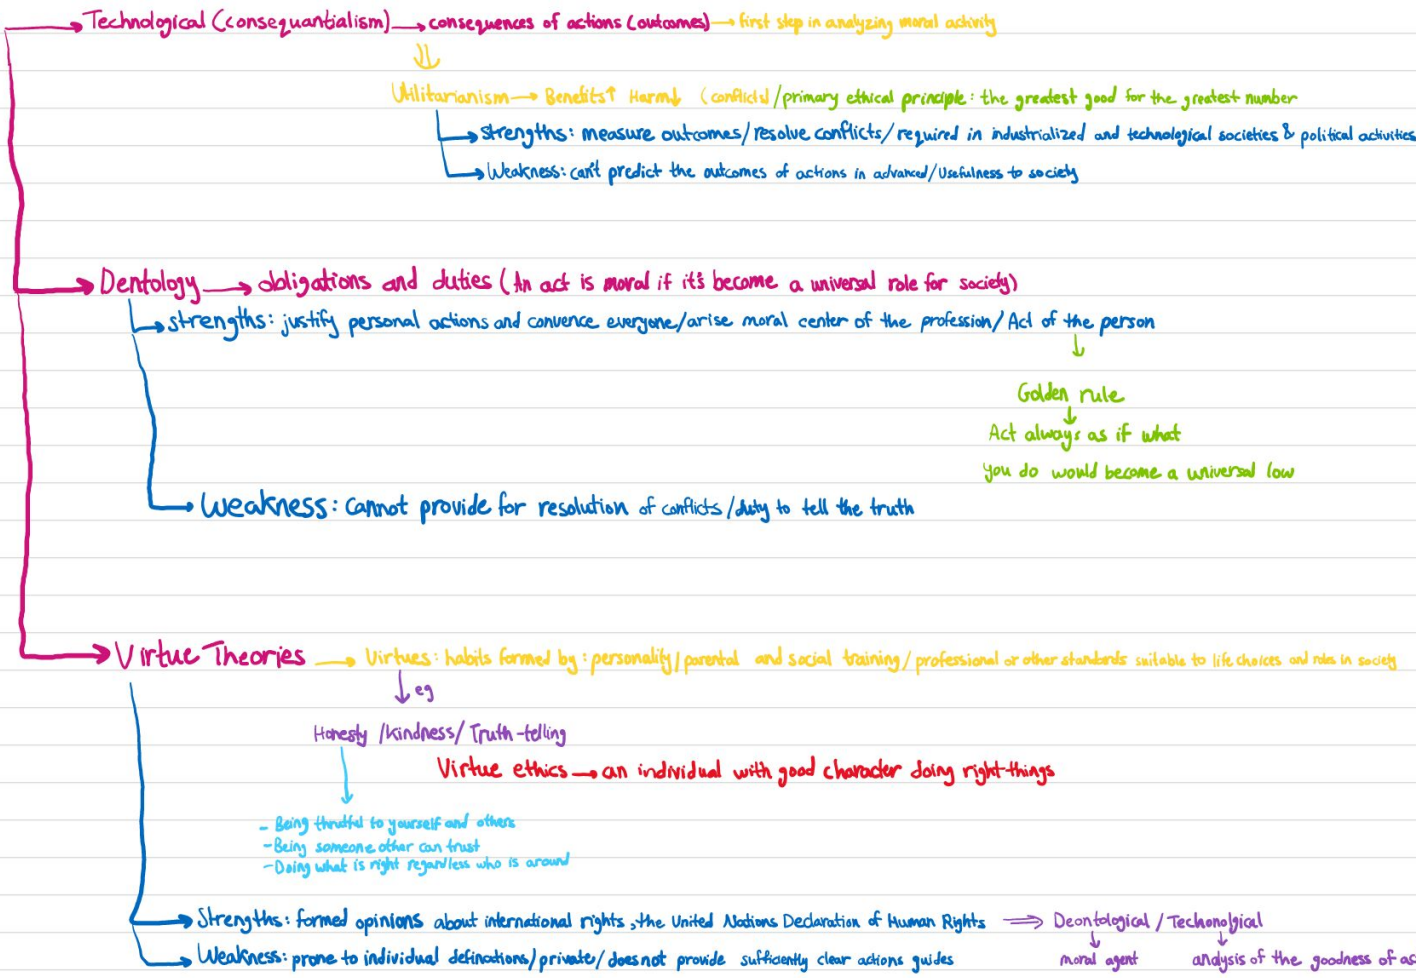 Technological (consequantialism) → consequences of actions (outcomes) → first step in analyzing moral activity
Utilitarianism → Benefits↑ Harm↓ (conflicts) / primary ethical principle: the greatest good for the greatest number
Strengths: measure outcomes/resolve conflicts/required in industrialized and technological societies & political activities
Weakness: can't predict the outcomes of actions in advanced/Usefulness to society
Dentology → obligations and duties (An act is moral if it's become a universal role for society)
Strengths: justify personal actions and convence everyone/arise moral center of the profession/Act of the person
Golden rule
Act always as if what
you do would become a universal low
Weakness: Cannot provide for resolution of conflicts/duty to tell the truth
Virtue Theories → Virtues: habits formed by: personality/parental and social training/professional or other standards suitable to life choices and roles in society
eg
Honesty /Kindness/ Truth-telling
Virtue ethics → an individual with good character doing right-things
- Being thrutful to yourself and others
- Being someone other can trust
- Doing what is right regardless who is around
Strengths: formed opinions about international rights, the United Nations Declaration of Human Rights ⇒ Deontological / Techonolgical
Weakness: prone to individual definations/private/does not provide sufficiently clear actions guides moral agent analysis of the goodness of as